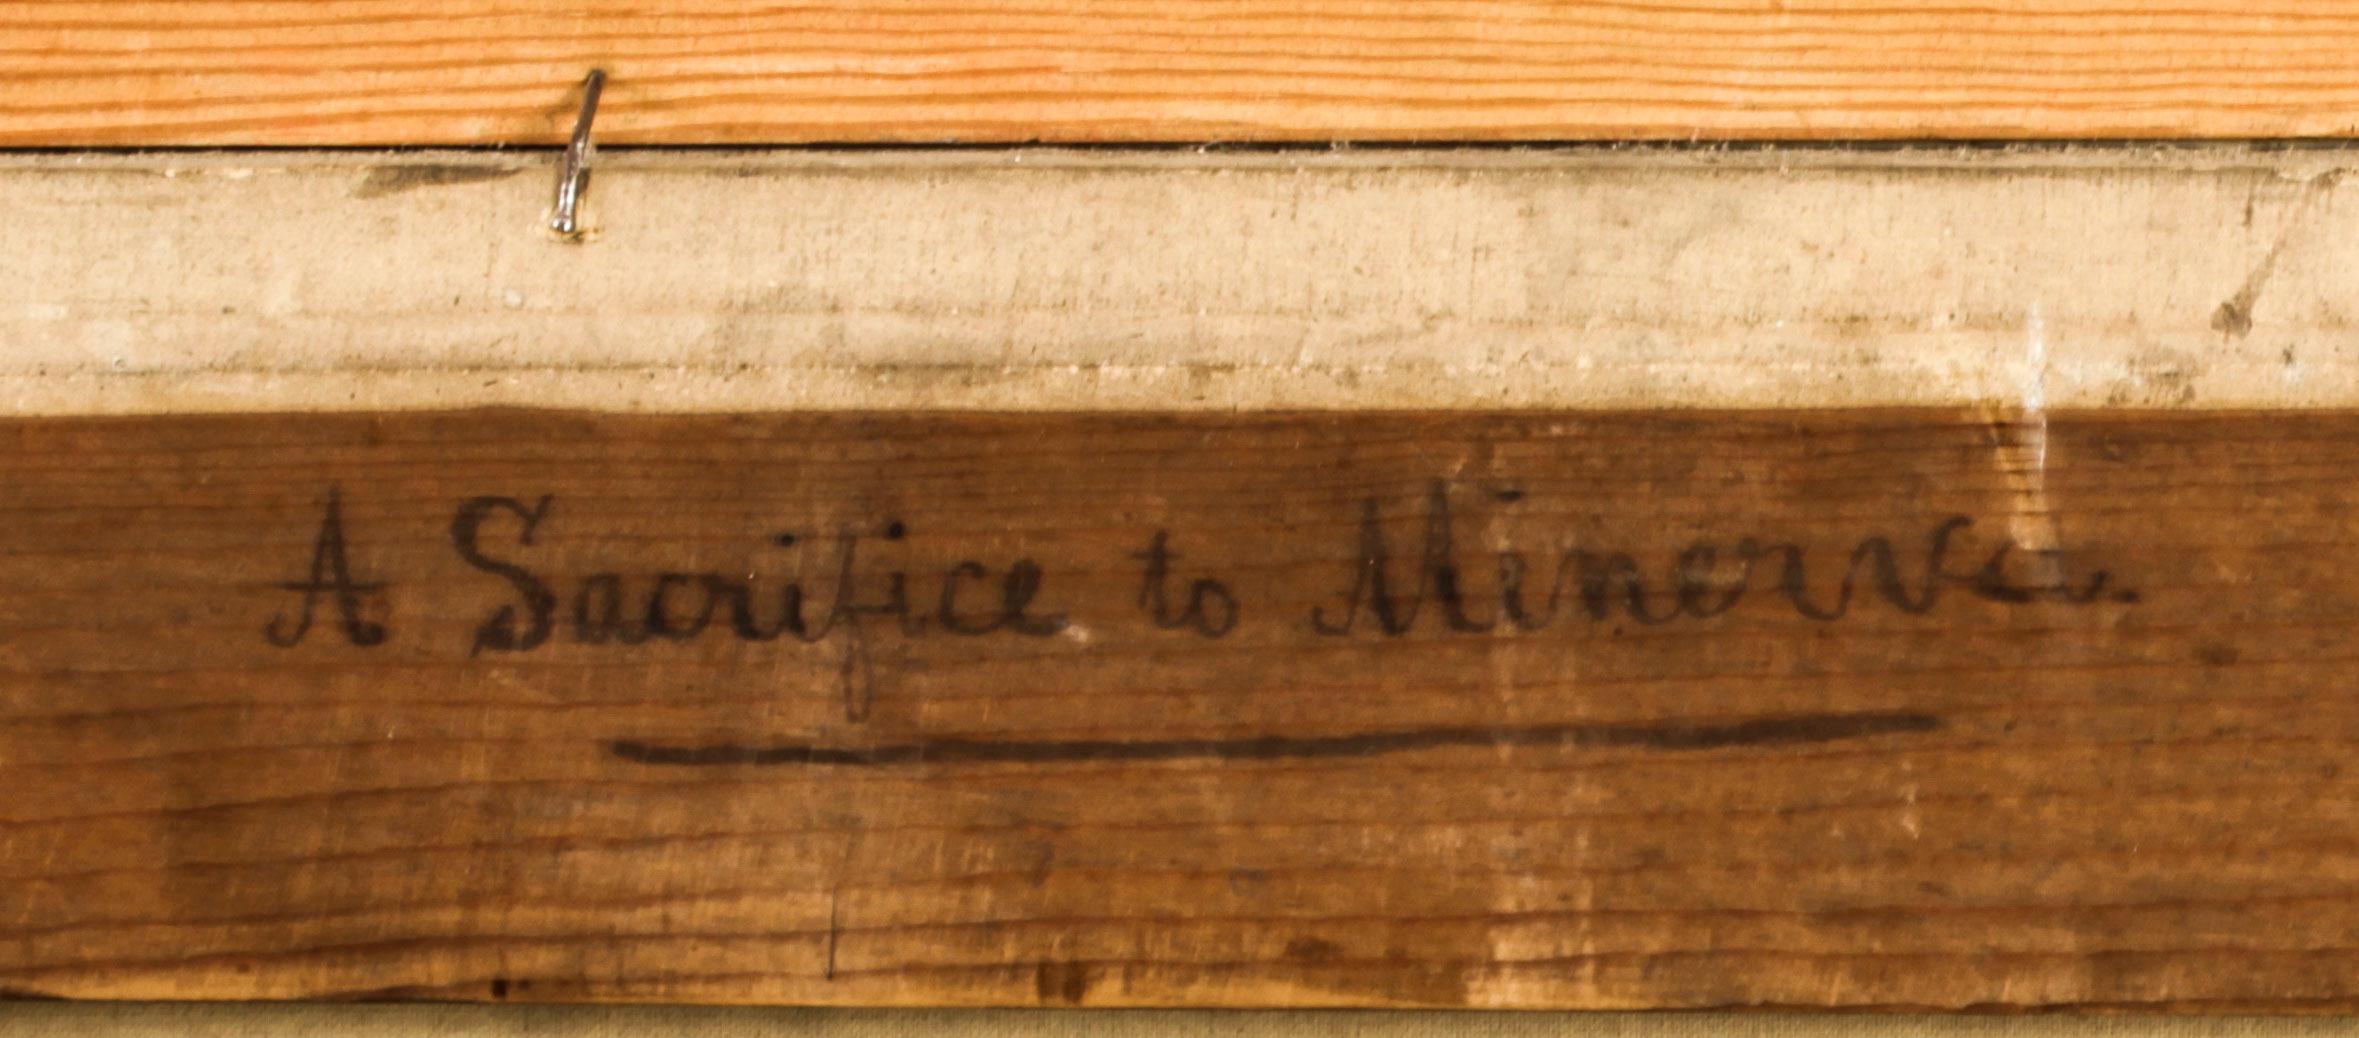 A Sacrifice to Minerva.